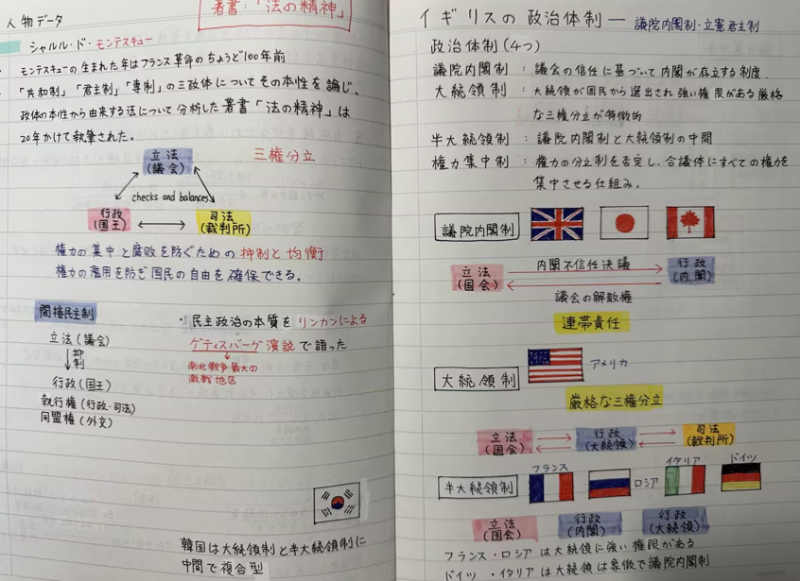 人物データ
著書:「法の精神」
シャルル・ド・モンテスキュー
モンテスキューの生まれた年はフランス革命のちょうど100年前
「共和制」「君主制」「専制」の三政体についてその本性を論じ、
政体の本性から由来する法について分析した著書「法の精神」は
20年かけて執筆された。
三権分立
立法
(議会)
checks and balances
行政
(国王)
司法
(裁判所)
権力の集中と腐敗を防ぐための抑制と均衡
権力の濫用を防ぎ国民の自由を確保できる。
間権民主制
立法(議会)
抑制
行政(国王)
執行権(行政・司法)
同盟権(外交)
・民主政治の本質をリンカンによる
ゲティスバーグ演説で語った
南北戦争最大の
激戦地区
韓国は大統領制と半大統領制に
中間で複合型
イギリスの政治体制ー議院内閣制・立憲君主制
政治体制(4つ)
議院内閣制:議会の信任に基づいて内閣が存立する制度.
大統領制:大統領が国民から選出され強い権限がある厳格
な三権分立が特徴的
半大統領制:議院内閣制と大統領制の中間
権力集中制:権力の分立制を否定し、合議体にすべての権力を
集中させる仕組み.
議院内閣制
立法
(国会)
内閣不信任決議
議会の解散権
行政
(内閣)
連帯責任
大統領制
アメリカ
厳格な三権分立
立法
(国会)
行政
(大統領)
司法
(裁判所)
半大統領制
フランス
ロシア
イタリア
ドイツ
立法
(国会)
行政
(内閣)
行政
(大統領)
フランス・ロシアは大統領に強い権限がある
ドイツ・イタリアは大統領は象徴で議院内閣制